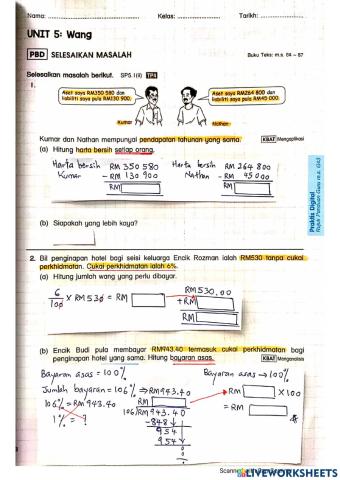 Nama: Kelas: Tarikh:
UNIT 5: Wang
PBD SELESAIKAN MASALAH
Buku Teks: m.s. 84 – 87
Selesaikan masalah berikut. SP5.1(ii) TP4
1.
Aset saya RM350 580 dan
liabiliti saya pula RM130 900.
Aset saya RM264 800 dan
liabiliti saya pula RM45 000.
Kumar
Nathan
Kumar dan Nathan mempunyai pendapatan tahunan yang sama. KBAT Mengaplikasi
(a) Hitung harta bersih setiap orang.
Harta bersih RM 350 580 Harta bersih RM 264 800
Kumar – RM 130 900 Nathan – RM 45 000
RM RM
(b) Siapakah yang lebih kaya?
Praktis Digital
2. Bil penginapan hotel bagi seisi keluarga Encik Rozman ialah RM530 tanpa cukai
perkhidmatan. Cukai perkhidmatan ialah 6%.
(a) Hitung jumlah wang yang perlu dibayar.
6/100 × RM 530 = RM
RM530.00
+RM
RM
(b) Encik Budi pula membayar RM943.40 termasuk cukai perkhidmatan bagi
penginapan hotel yang sama. Hitung bayaran asas. KBAT Menganalisis
Bayaran asas = 100% Bayaran asas → 100%
Jumlah bayaran = 106% ⇒ RM943.40
RM × 100
106% = RM 943.40 RM
= RM
1% = ? 106 RM943.40
-848
954
954
0
LIVEWORKSHEETS